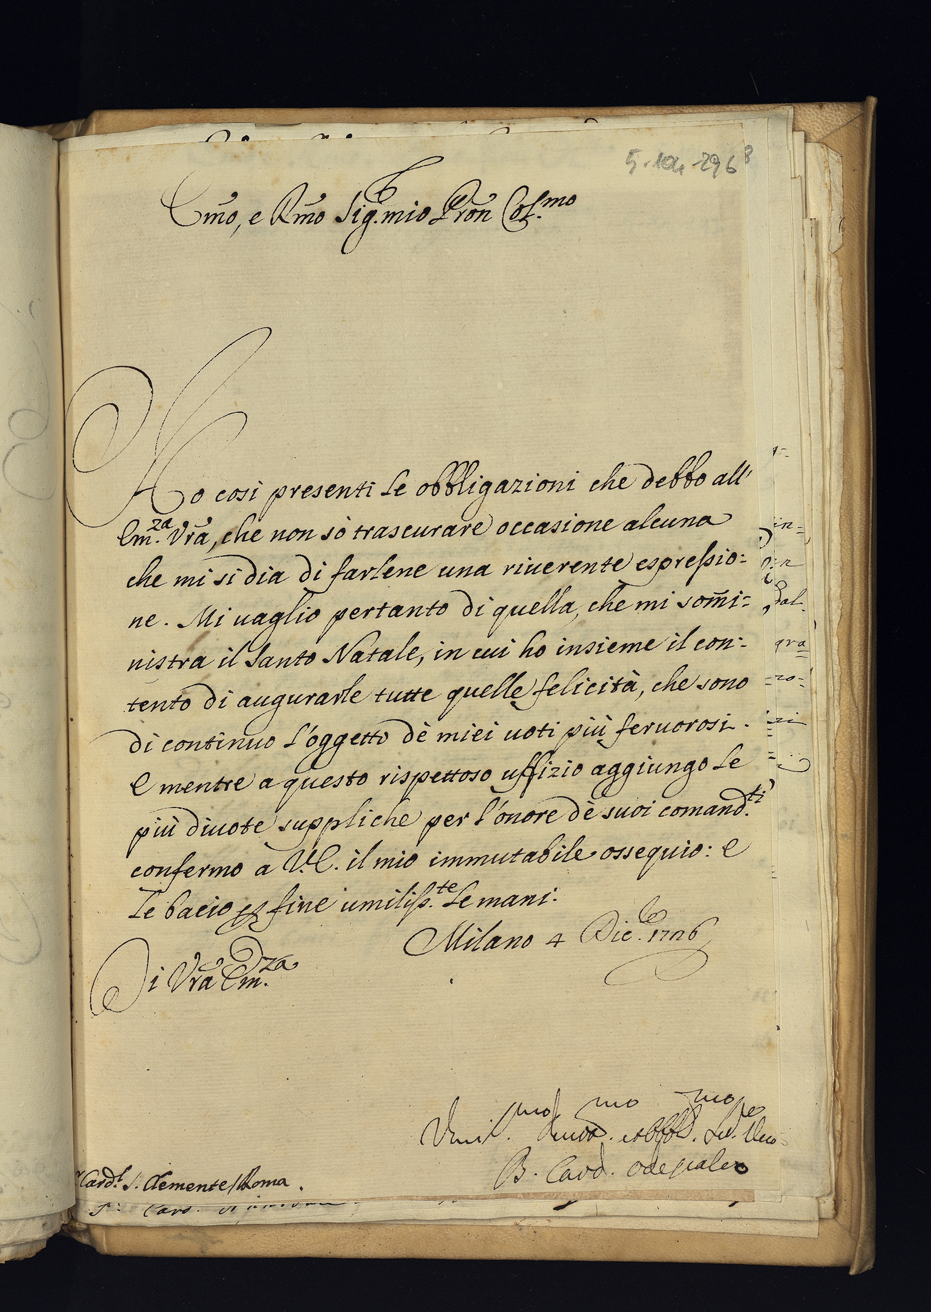 Emo, e Rmo Sig.r mio Pron Col.mo
Ho così presenti le obbligazioni che debbo all'
Em.za Vrā, che non sò trascurare occasione alcuna
che mi si dia di farlene una riuerente espressio:
ne. Mi uaglio pertanto di quella, che mi som̄i:
nistra il Santo Natale, in cui ho insieme il con:
tento di augurarle tutte quelle felicità, che sono
di continuo l'oggetto dè miei uoti più feruorosi.
E mentre a questo rispettoso uffizio aggiungo le
più diuote suppliche per l'onore dè suoi comand.ti
confermo à V.E. il mio immutabile ossequio: e
le bacio per fine umiliss.te le mani.
Milano 4 Dic.e 1726
Di Vrā Em.za
Umil.mo Deuot.mo et obbl.mo Ser.e Uero
B. Card. Odescalco
Card.l S. Clemente / Roma.